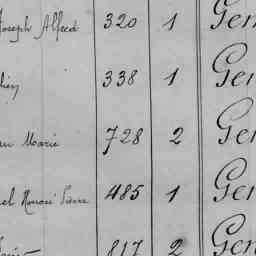 Joseph Alfred 320 1 Gen
338 1 Gen
Marie 728 2 Gen
el Honoré Pierre 485 1 Gen
817 2 Gen